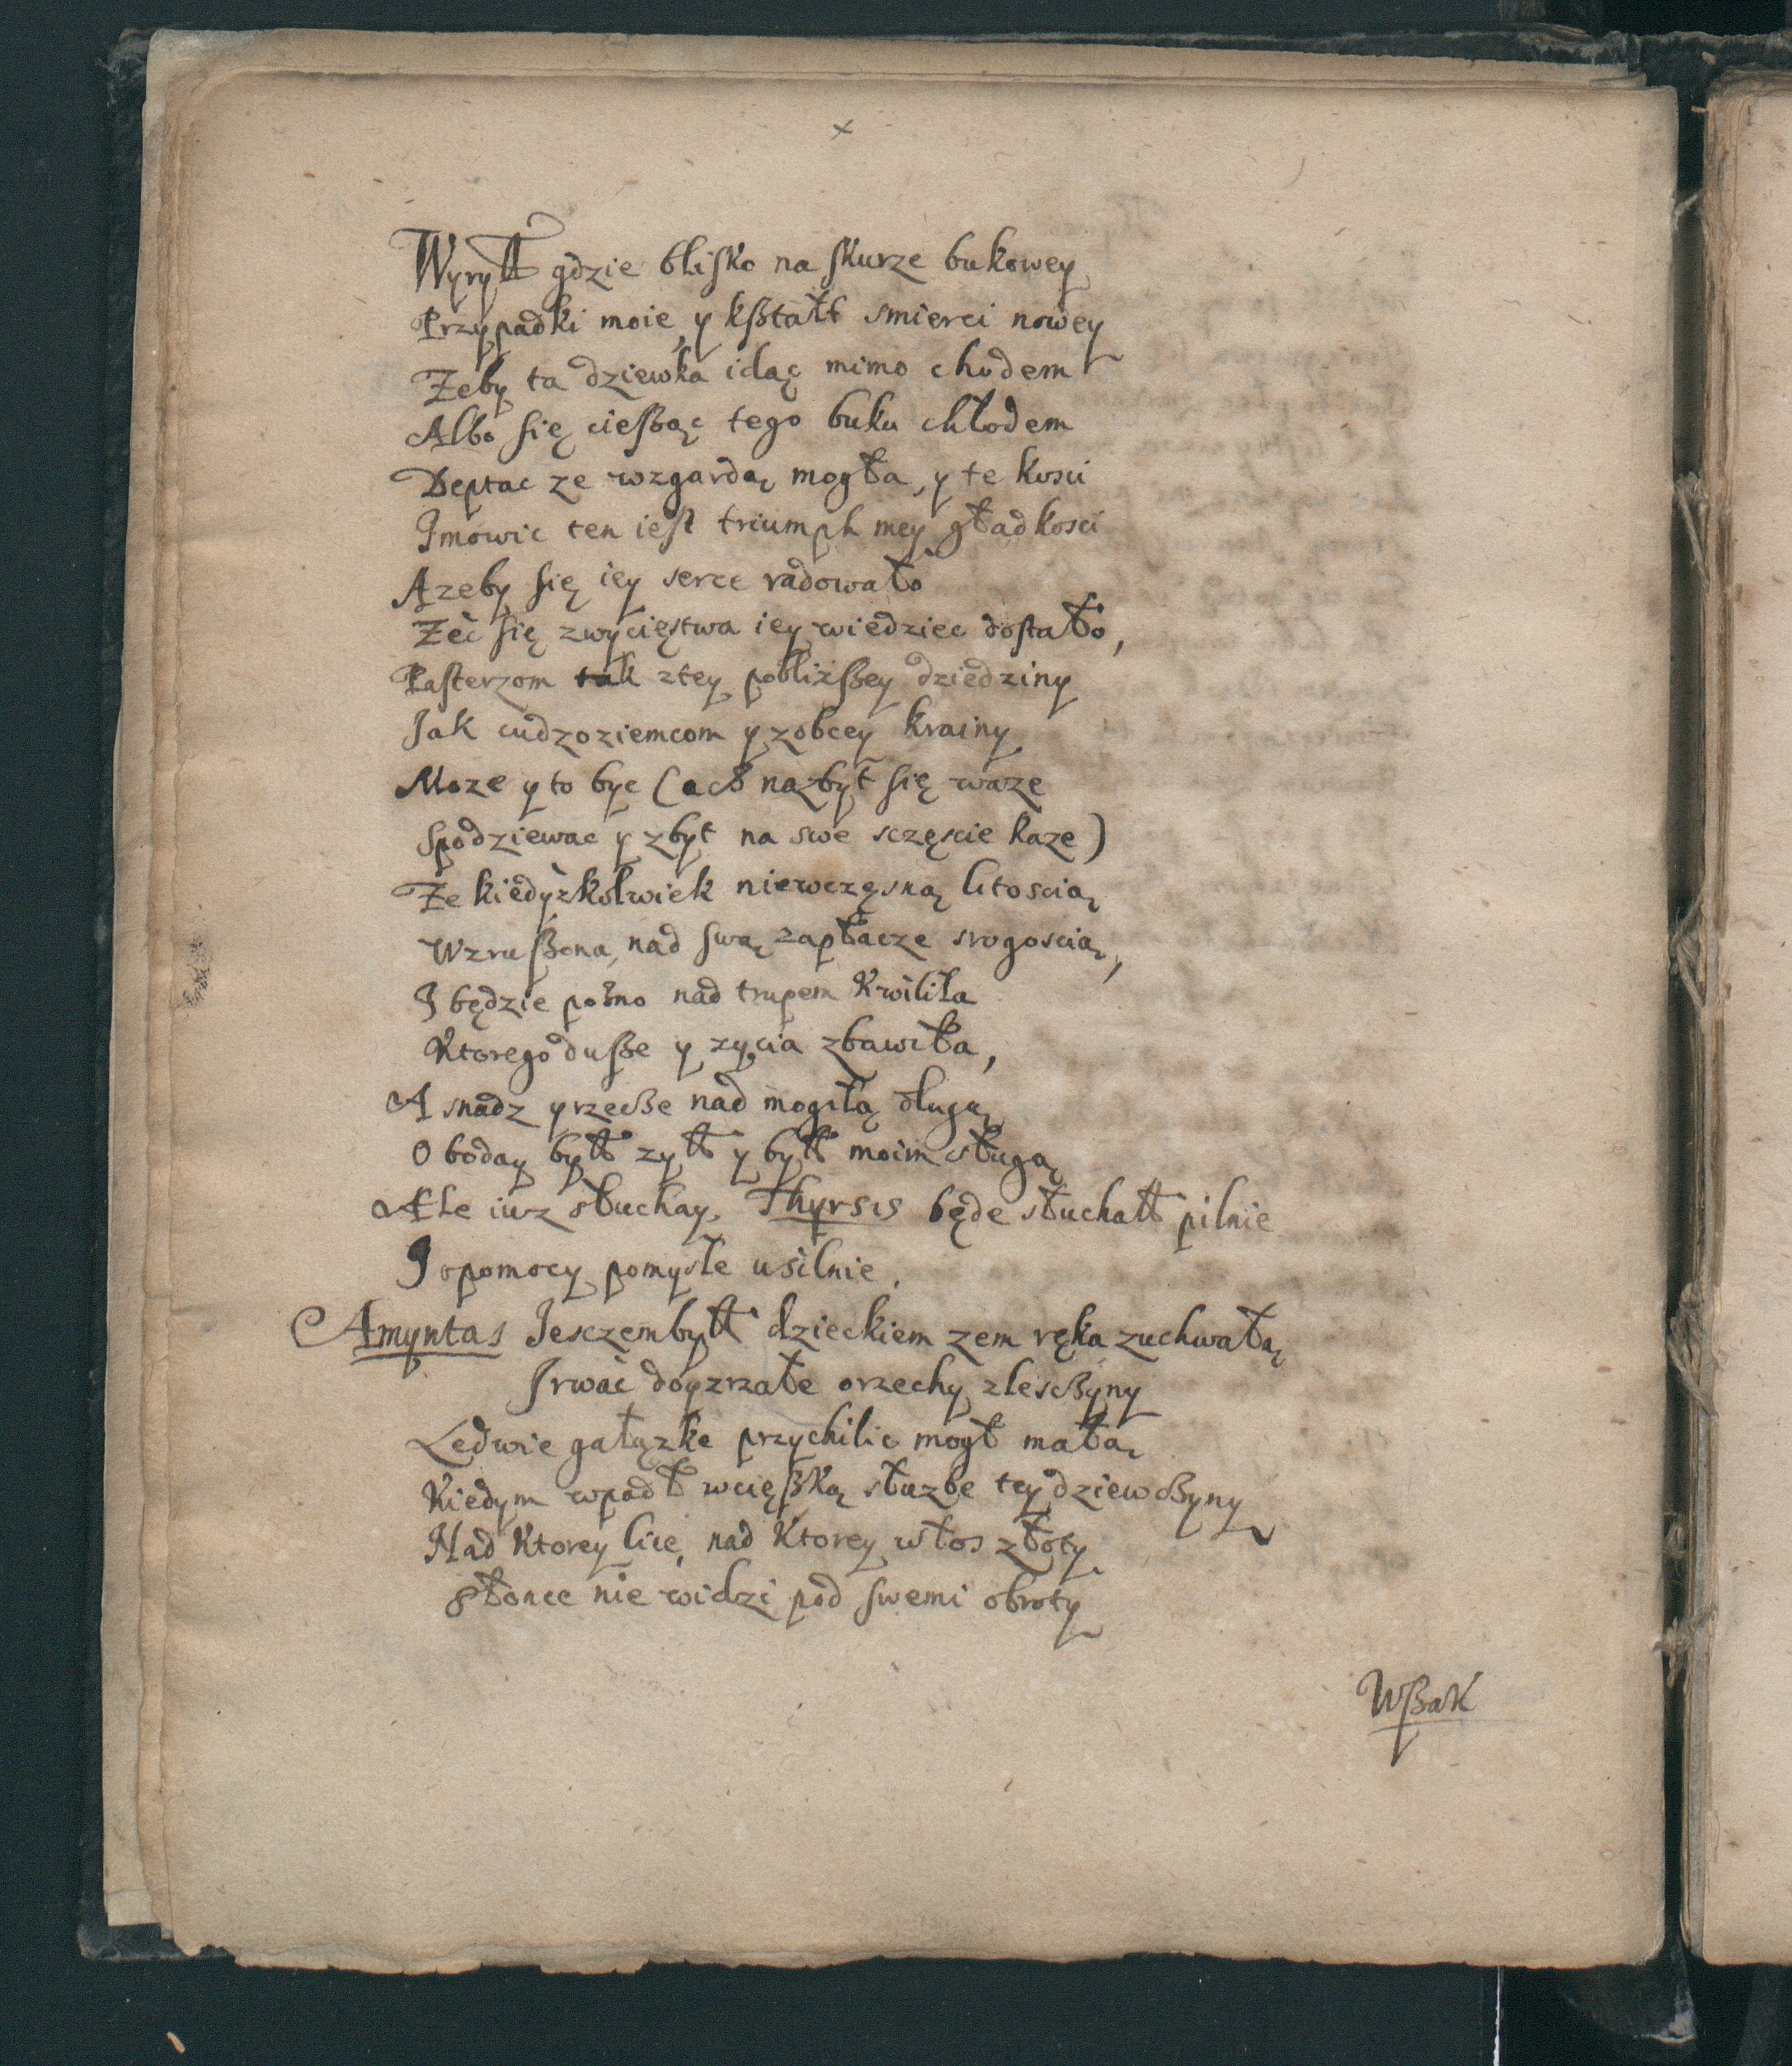 x
Wyrytł gdzie blisko na skurze bukowey
Przypadki moie, y kßtałt smierci nowey
Zeby ta dziewka idąc mimo chodem
Albo się cießąc tego buku chłodem
Deptac ze wzgardą mogła, y te kosci
I mowic ten iest triumph mey gładkosci
A zeby się iey serce radowało
Zeć się zwycięstwa iey wiedziec dostało,
Pasterzom tak z tey pobliżßey dziedziny
Jak cudzoziemcom y z obcey krainy
Moze y to byc (ach nazbyt się waze
Spodziewac y zbyt na swe sczęscie kaze)
Ze kiedyżkolwiek niewczęsną litoscią
Wzrußona, nad swą zapłacze srogoscią,
I będzie pozno nad trupem kwiliła
Ktorego duße y zycia zbawiła,
A snadz y rzecße nad mogiłą długą
O boday był zył y był moim sługą
Ale iuz słuchay. Thyrsis będe słuchał pilnie
I o pomocy pomysle usilnie.
Amyntas Jesczem był dzieckiem zem ręka zuchwałą
I rwać doyzrzałe orzechy z lescßyny
Ledwie gałązke przychilic mogł małą
Kiedym wpadł w cięßką słuzbe tey dziewcßyny
Nad ktorey lice, nad ktorey włos złoty
Słonce nie widzi pod swemi obroty
Wßak